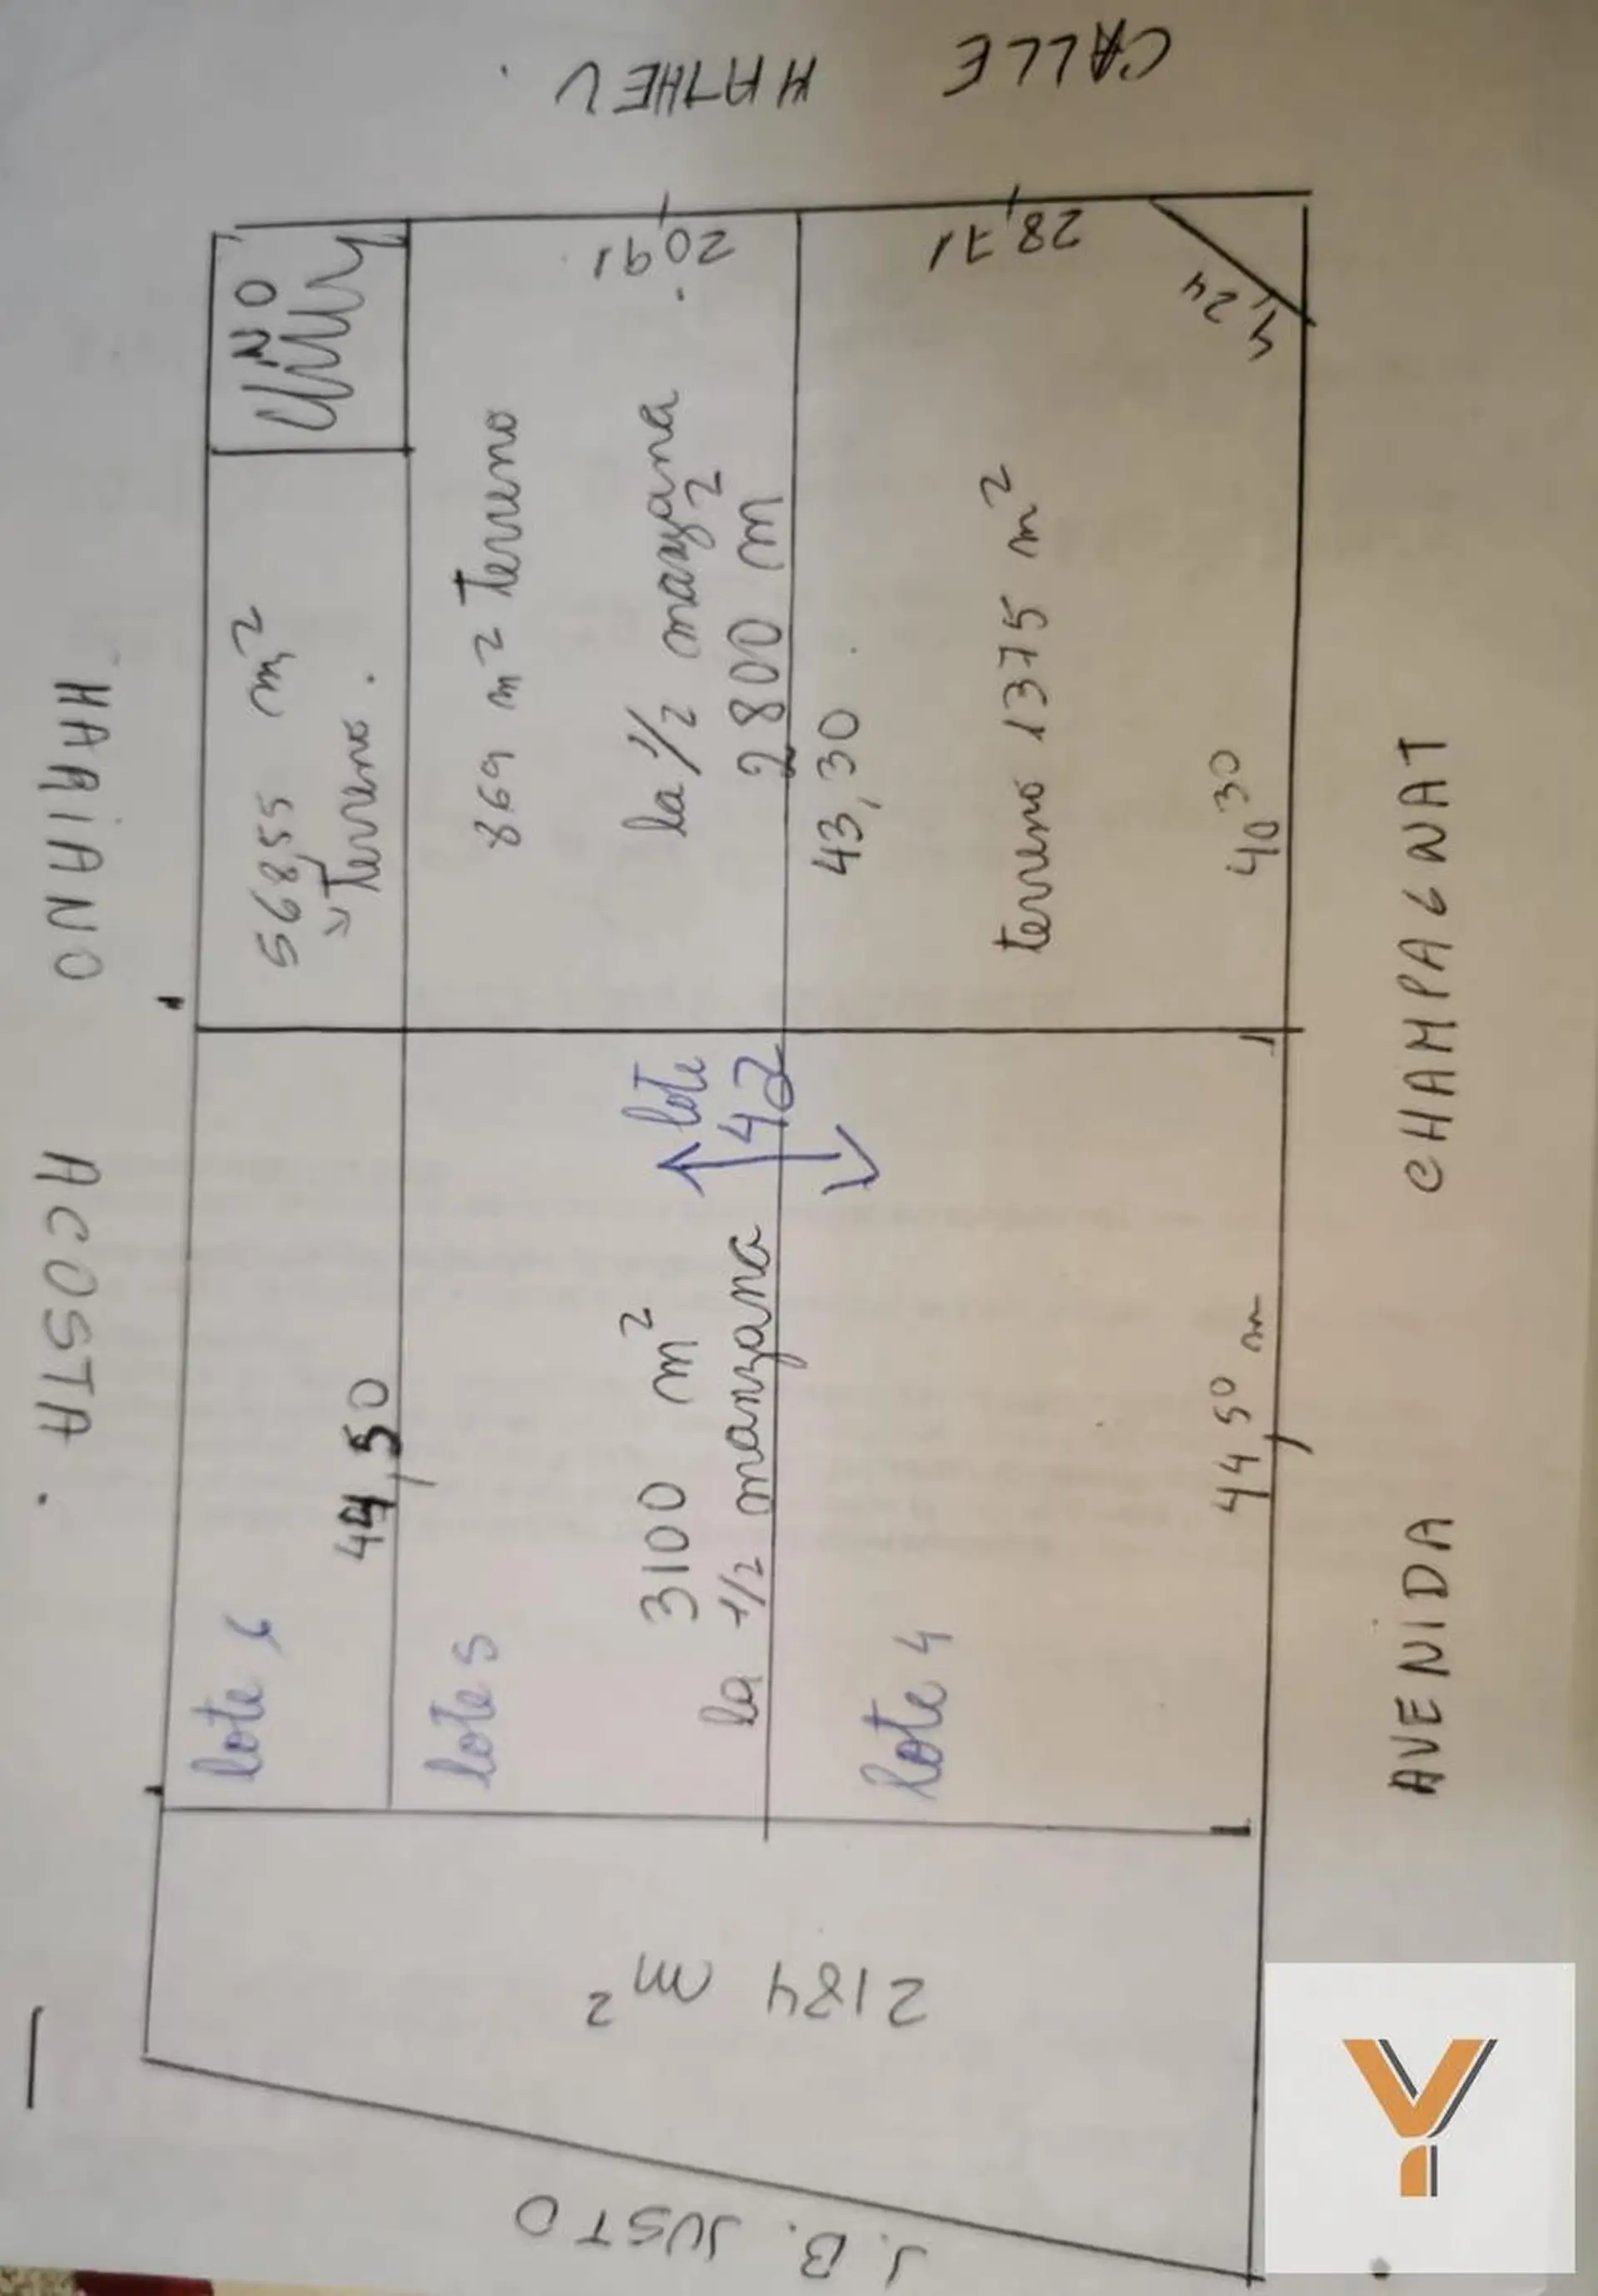 CALLE MATHEU.
MARIANO ACOSTA.
AVENIDA CHAMPAGNAT
J. B. JUSTO
NO
568,55 m²
Terreno.
869 m² Terreno
20,91
la 1/2 manzana
2800 m²
43,30
28,71
4,24
terreno 1375 m²
40,30
lote 6
44,50
lote 5
3100 m²
la 1/2 manzana
lote
42
lote 4
44,50 m
2184 m²